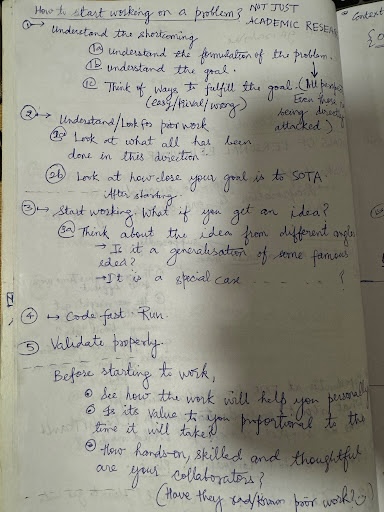 How to start working on a problem? NOT JUST
ACADEMIC RESEAR
① → Understand the shortcoming
1a understand the formulation of the problem.
1b understand the goal.
1c Think of ways to fulfill the goal. (All
(easy/trivial/wrong) Even there
being directly
attacked.)
② → Understand/Look for prior work
2a Look at what all has been
done in this direction.
2b Look at how close your goal is to SOTA.
After starting.
③ → Start working. What if you get an idea?
3a Think about the idea from different angles
→ Is it a generalisation of some famous
idea?
→ It is a special case . . . . . . ?
④ → Code fast. Run.
⑤ Validate properly.
Before starting to work,
See how the work will help you personally
Is its value to you proportional to the
time it will take?
How hands-on, skilled and thoughtful
are your collaborators?
(Have they read/known prior work? :)
Context